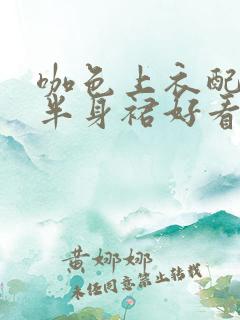 咖色上衣配
半身裙好看
黄娜娜
未经同意禁止转载